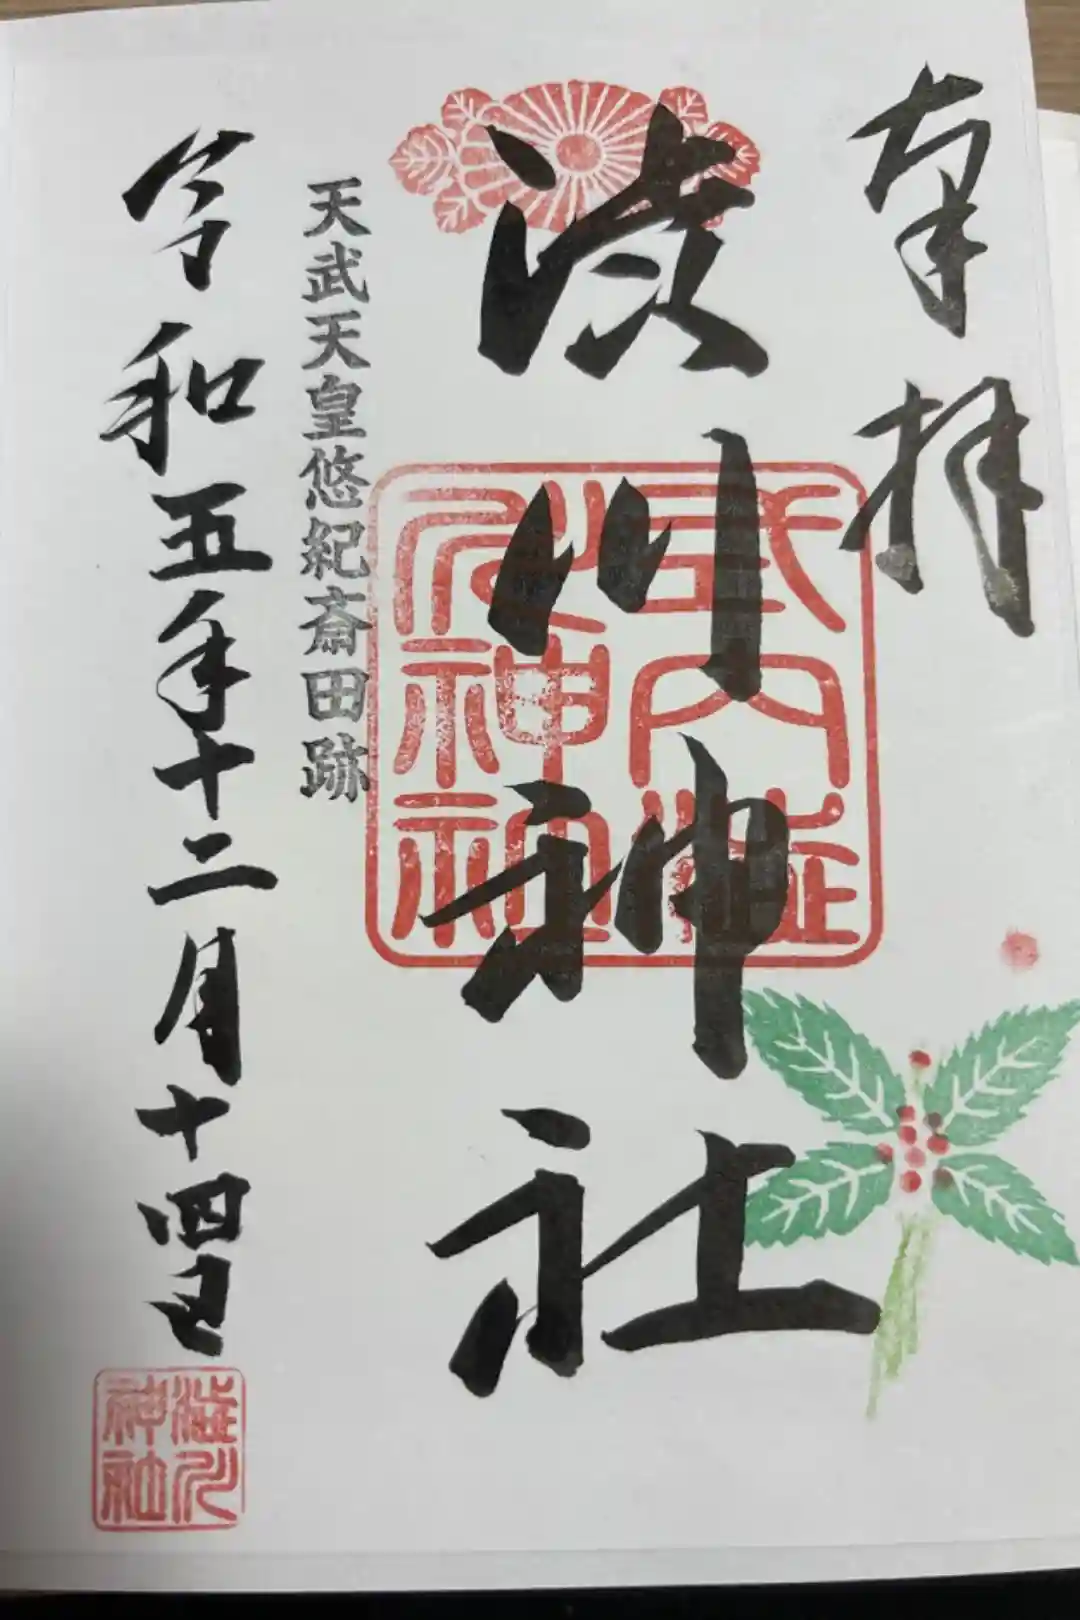 奉拝
渋川神社
天武天皇悠紀斎田跡
令和五年十二月十四日
式内渋
川神社
渋川
神社